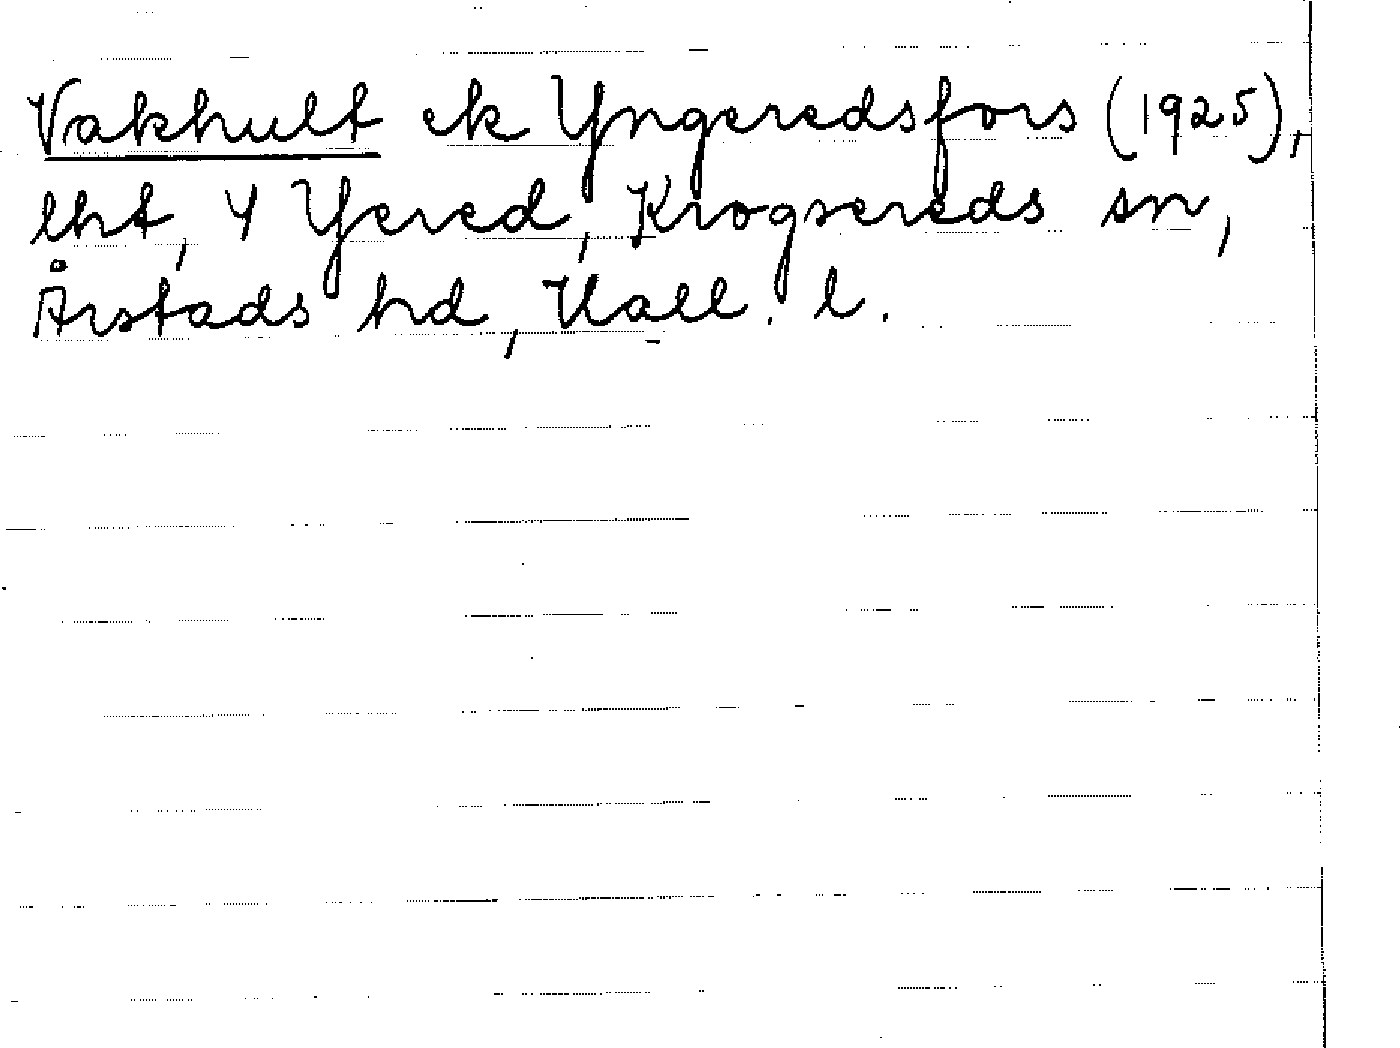 Vakhult ek Yngeredsfors (1925),
lht, Y Yered, Krogsereds sn,
Årstads hd, Hall. l.